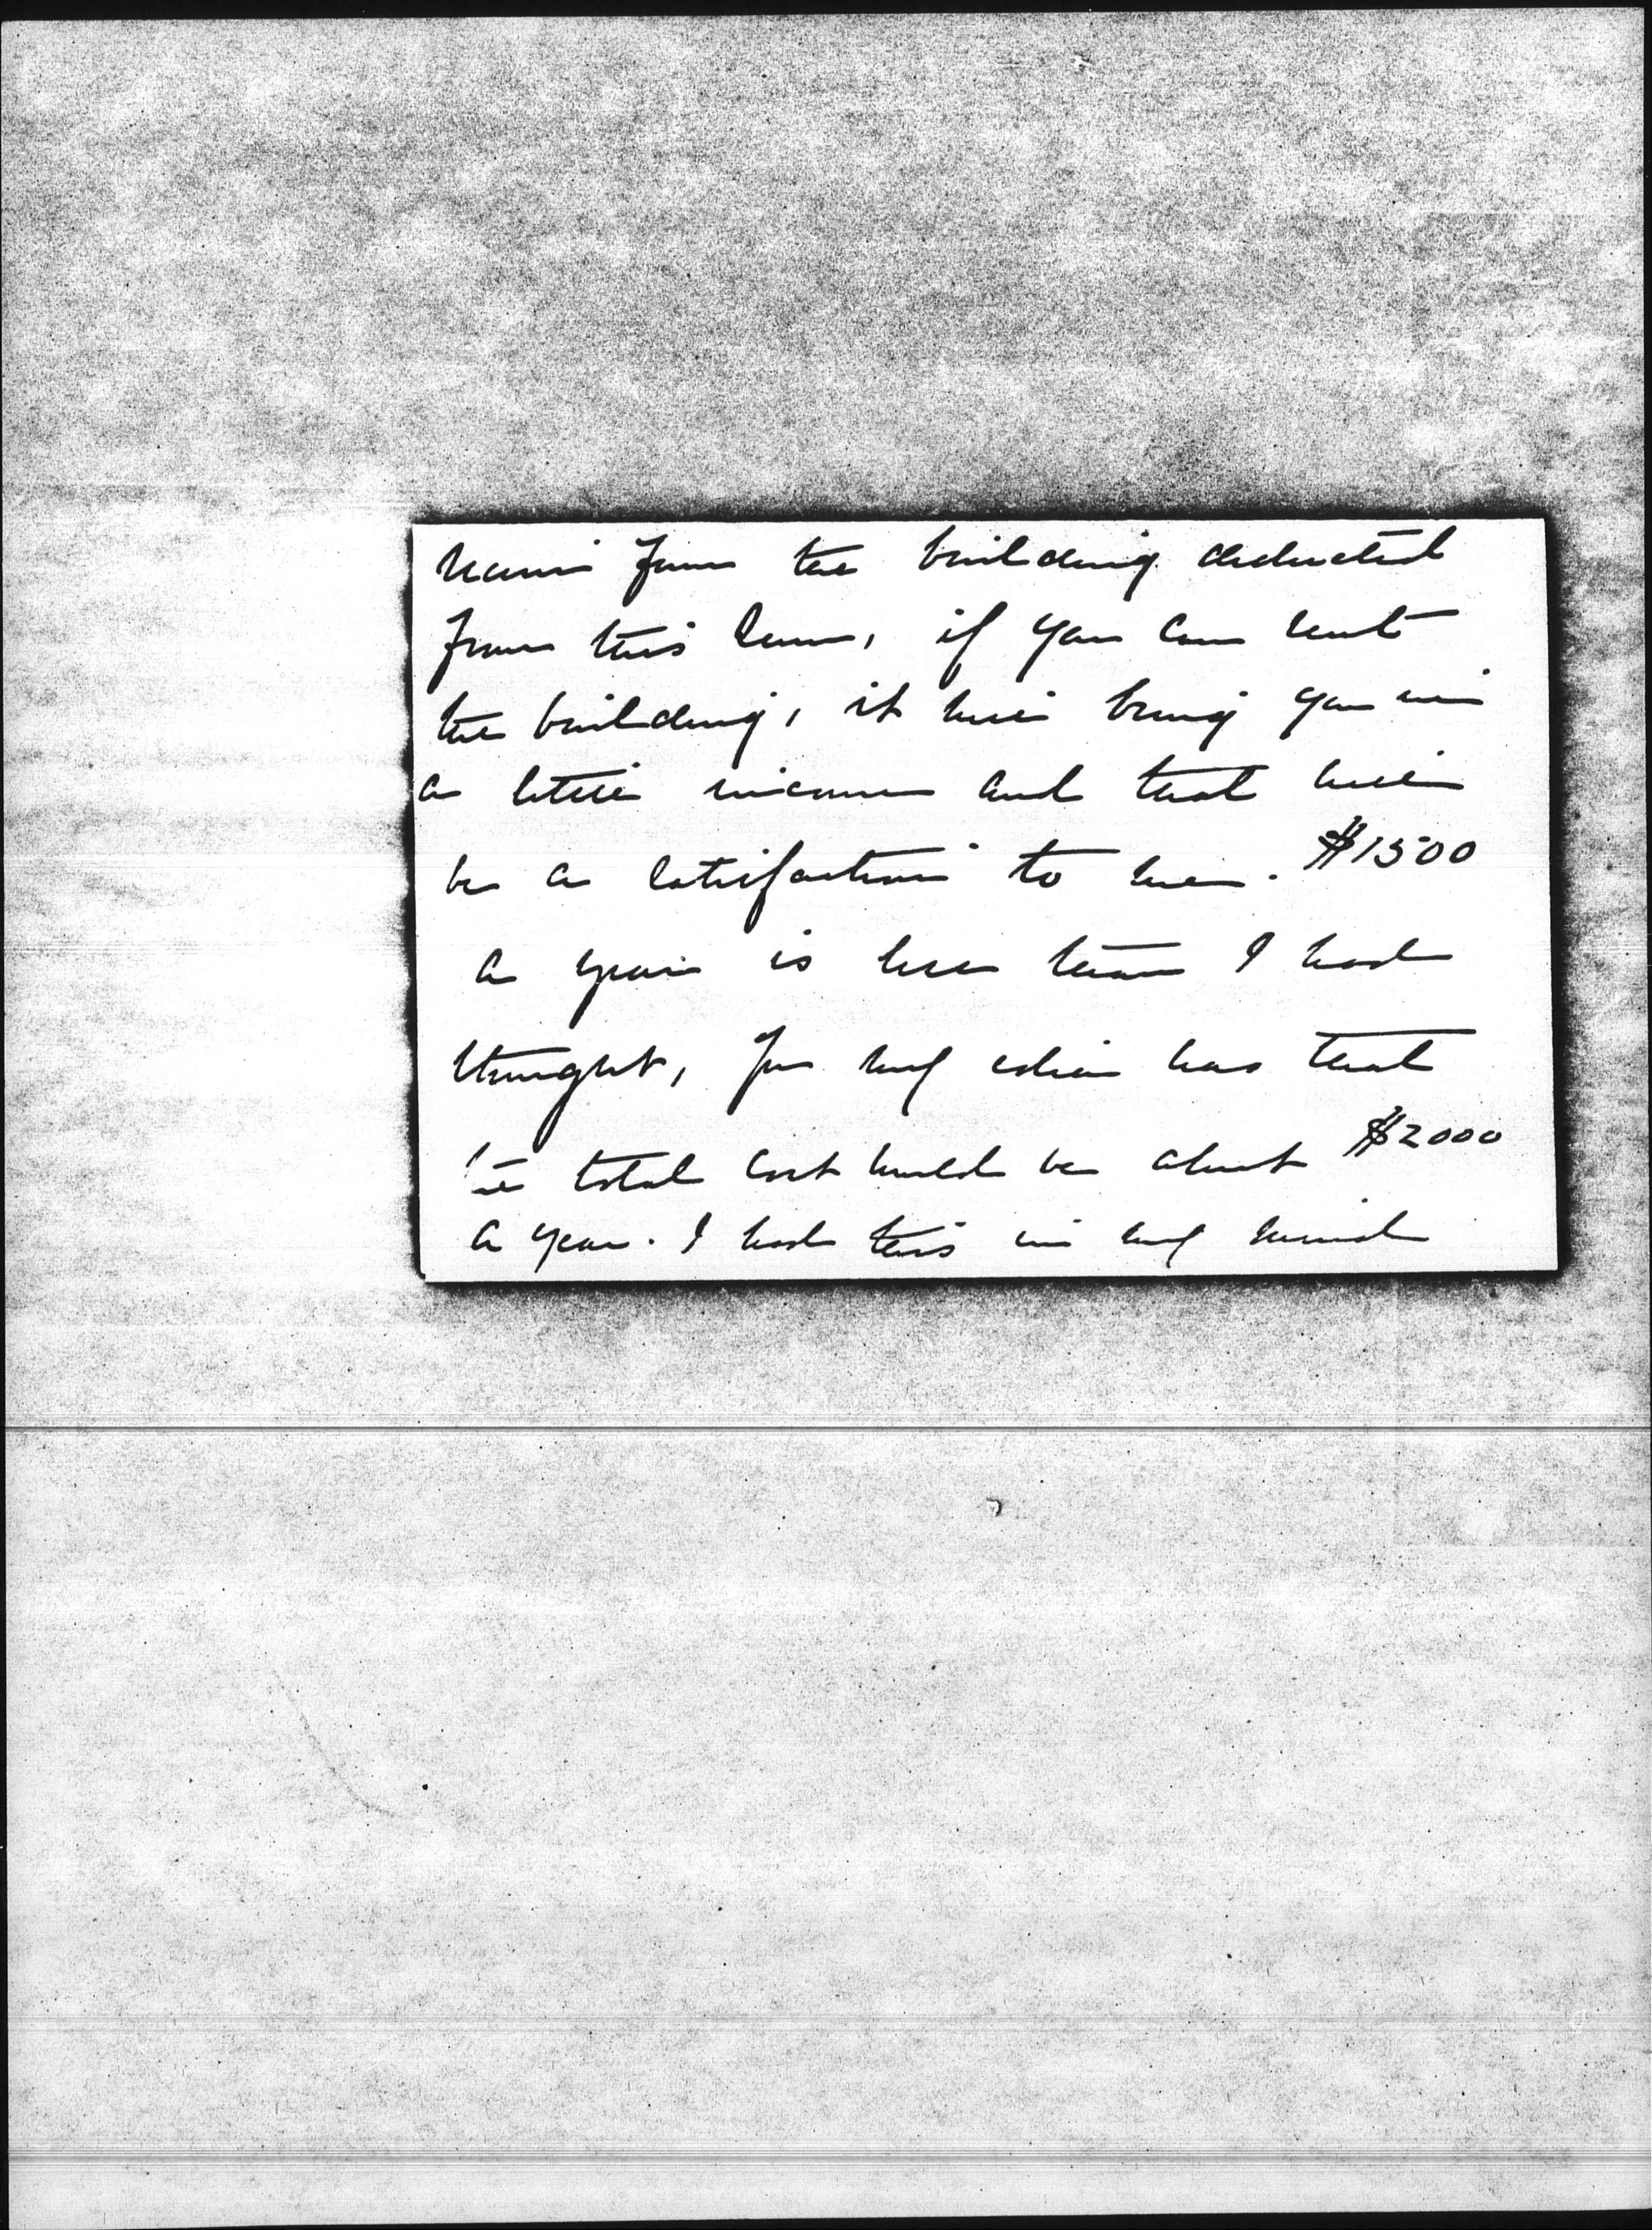 from the building deducted
from this sum, if you can rent
the building, it will bring you in
a little income and that will
be a satisfaction to me. $1500
a year is less than I had
thought, for my idea was that
the total cost would be about $2000
a year. I had this in my mind